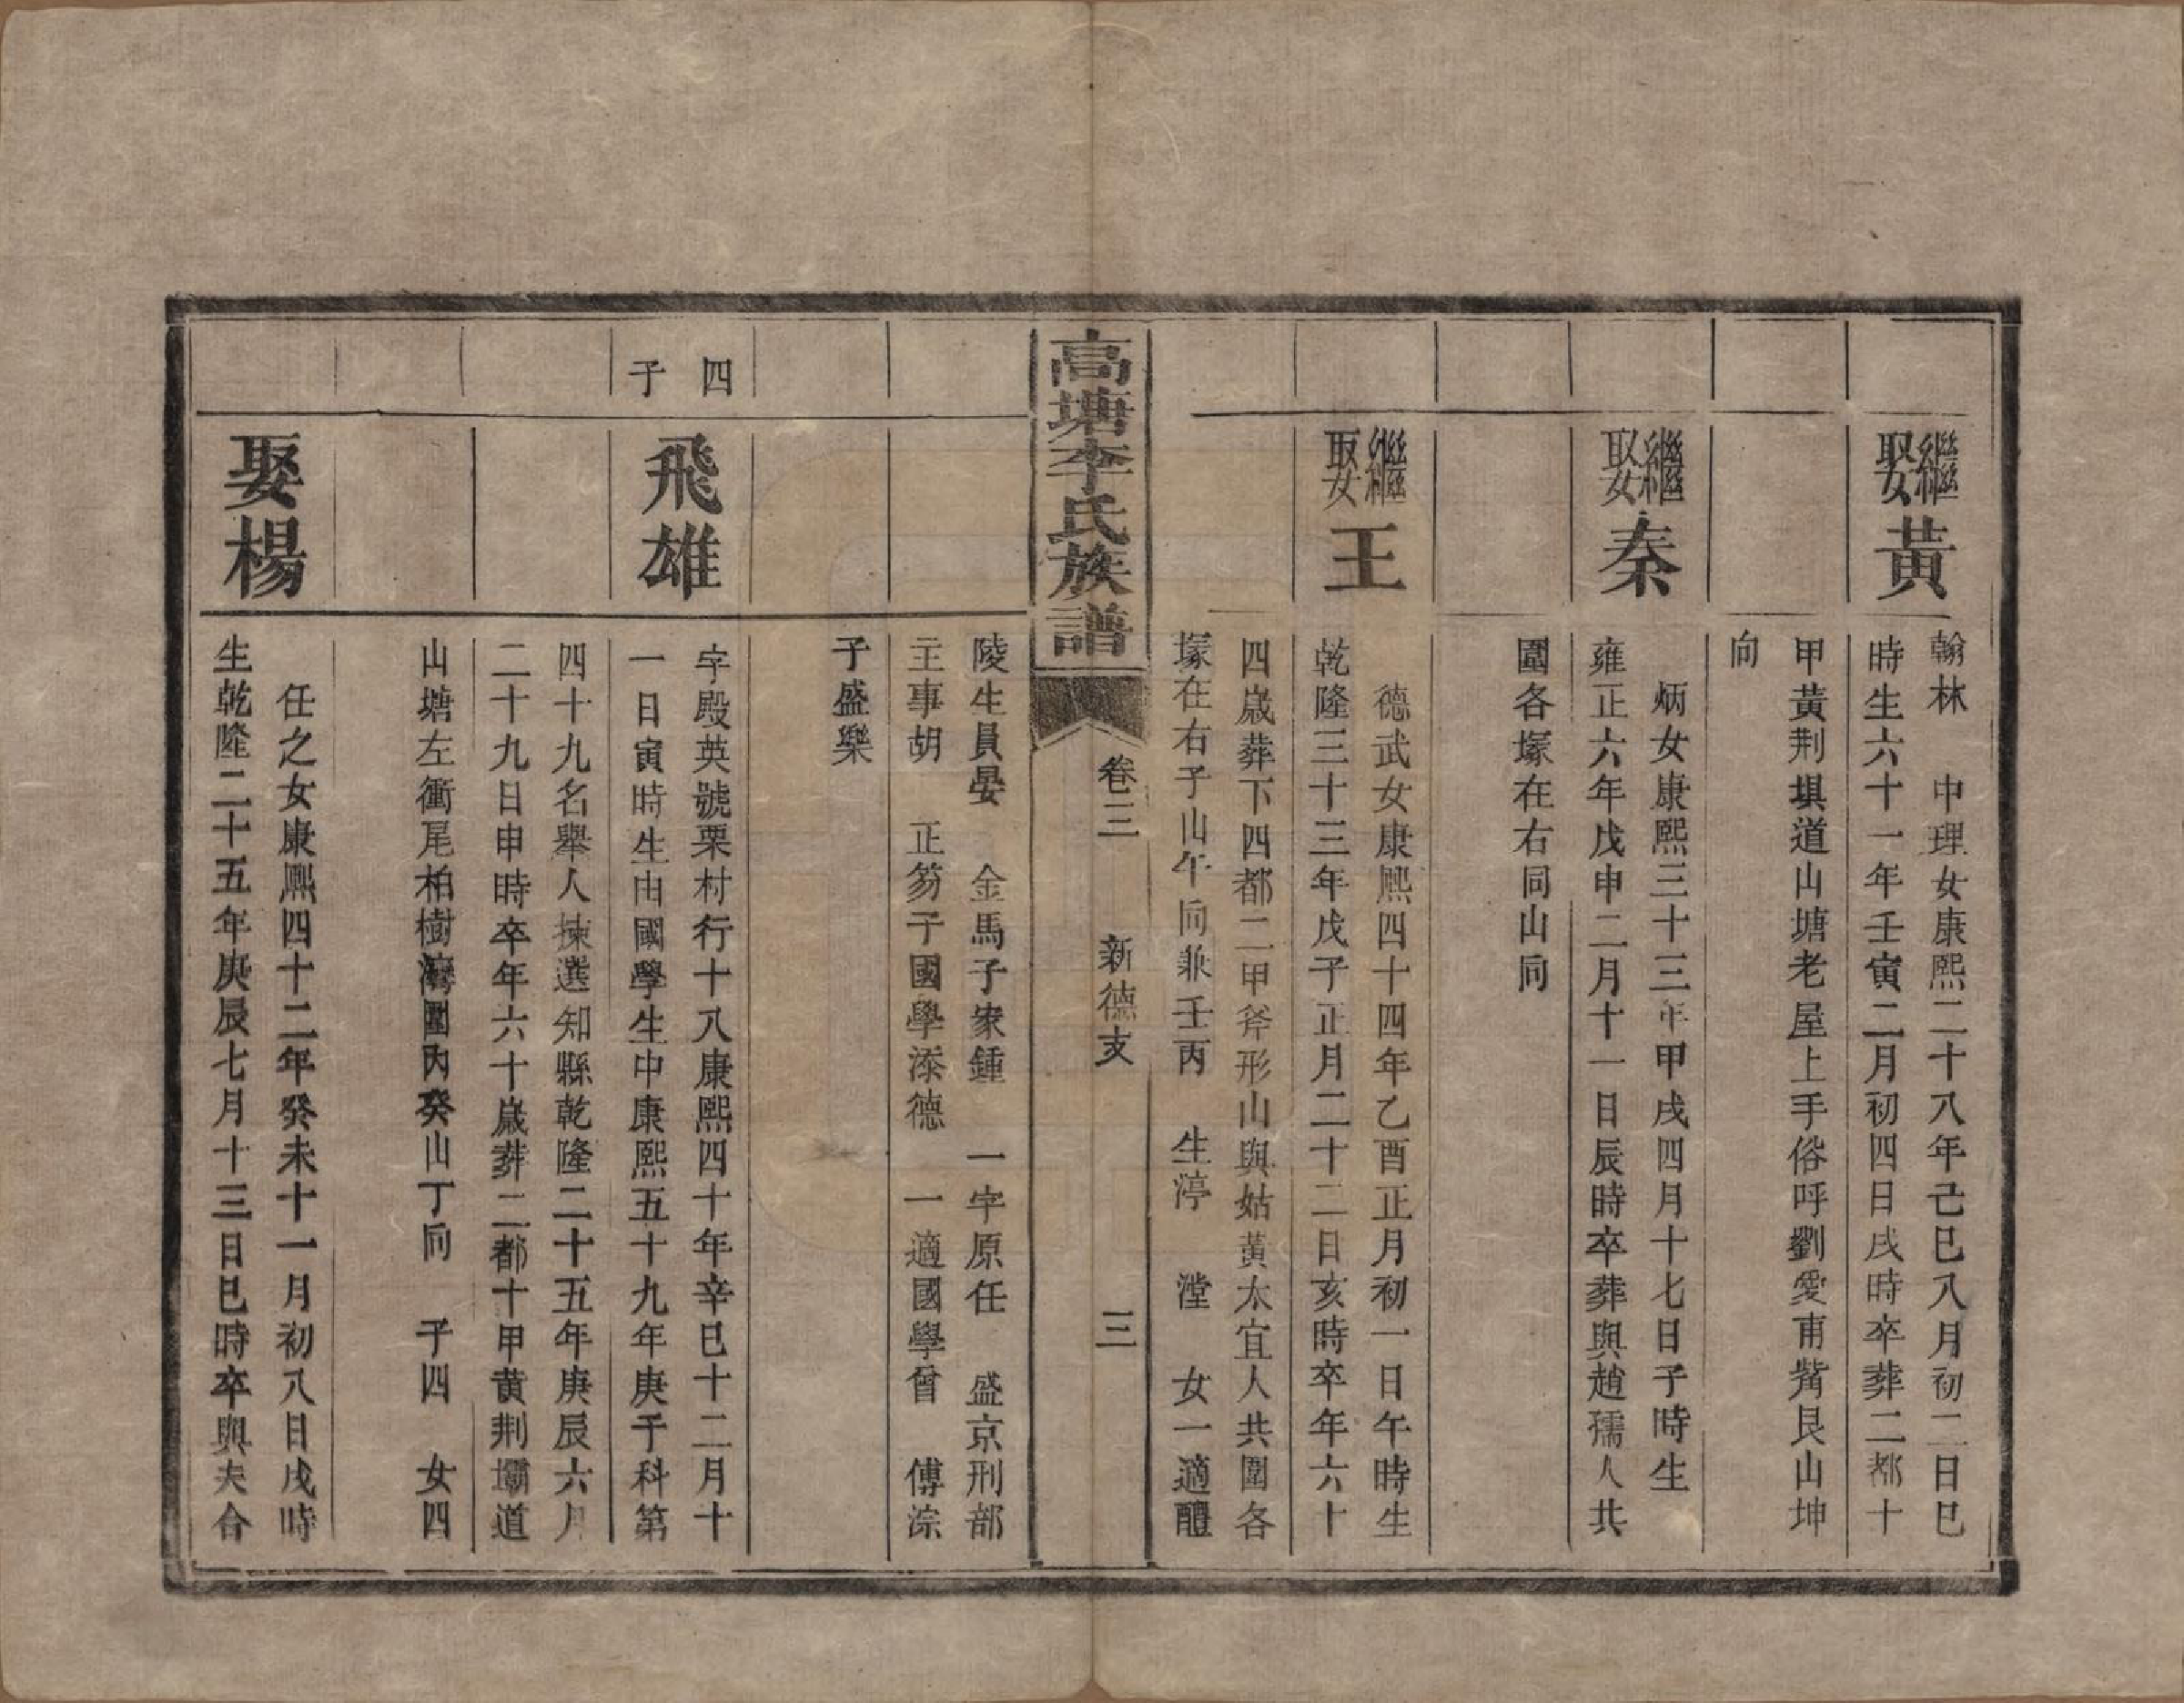 繼娶黃
翰林　中理女康熙二十八年己巳八月初二日巳
時生六十一年壬寅二月初四日戌時卒葬二都十
甲黃荆埧道山塘老屋上手俗呼劉愛甫觜艮山坤
向
繼娶秦
炳女康熙三十三年甲戌四月十七日子時生
雍正六年戊申二月十一日辰時卒葬與趙孺人共
圍各塚在右同山同
繼娶王
德武女康熙四十四年乙酉正月初一日午時生
乾隆三十三年戊子正月二十二日亥時卒年六十
四歲葬下四都二甲斧形山與姑黃太宜人共圍各
塚在右子山午向兼壬丙　生渟　瀅　女一適醴
高塘李氏族譜
卷三　新德支　三
陵生員晏　金馬子家鍾　一字原任　盛京刑部
主事胡　正笏子國學添德　一適國學曾　傅淙
子盛樂
四子
飛雄
字殿英號栗村行十八康熙四十年辛巳十二月十
一日寅時生由國學生中康熙五十九年庚子科第
四十九名舉人揀選知縣乾隆二十五年庚辰六月
二十九日申時卒年六十歲葬二都十甲黃荆壩道
山塘左衝尾柏樹灣圍內癸山丁向　子四　女四
娶楊
任之女康熙四十二年癸未十一月初八日戌時
生乾隆二十五年庚辰七月十三日巳時卒與夫合